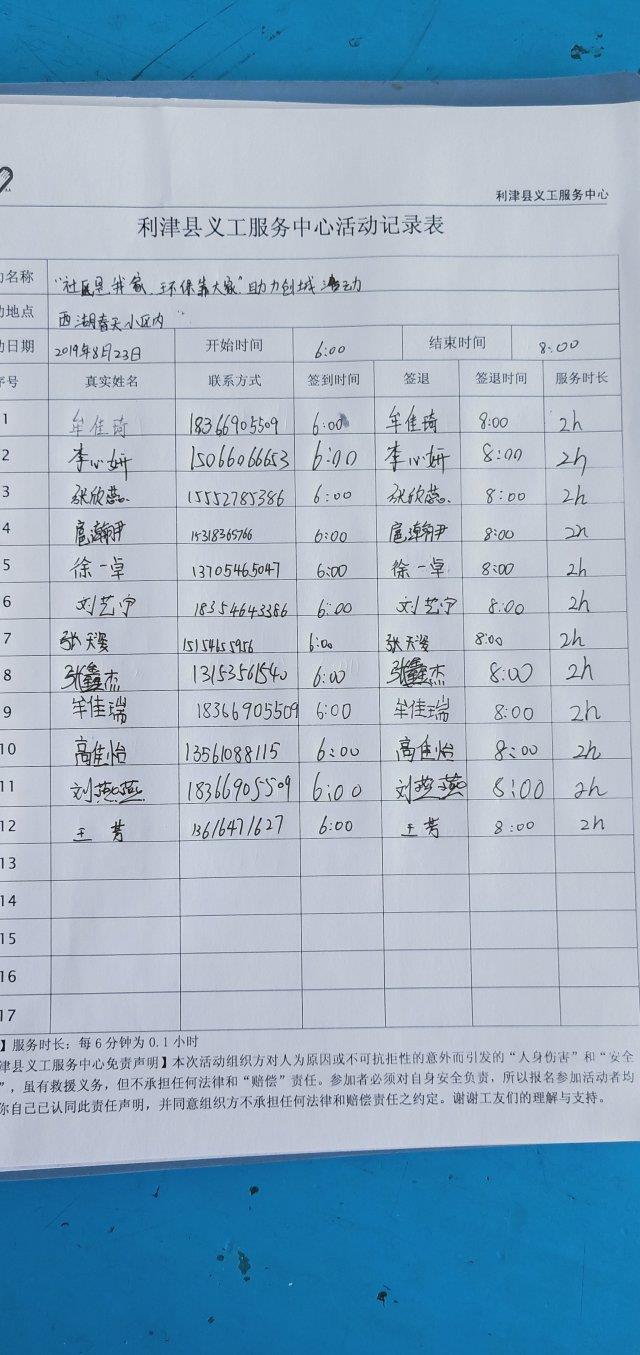 利津县义工服务中心
利津县义工服务中心活动记录表
名称 "社区是我家、环保靠大家"助力创城活动
地点 西湖春天小区内
日期 2019年8月23日 开始时间 6:00 结束时间 8:00
序号 真实姓名 联系方式 签到时间 签退 签退时间 服务时长
1 牟佳琦 18366905509 6:00 牟佳琦 8:00 2h
2 李心妍 15066066653 6:00 李心妍 8:00 2h
3 张欣蕊 15552785386 6:00 张欣蕊 8:00 2h
4 扈瀚尹 15318365766 6:00 扈瀚尹 8:00 2h
5 徐一卓 13705465047 6:00 徐一卓 8:00 2h
6 刘艺宁 18354643386 6:00 刘艺宁 8:00 2h
7 张天姿 15154655956 6:00 张天姿 8:00 2h
8 张鑫杰 13153561540 6:00 张鑫杰 8:00 2h
9 牟佳瑞 18366905509 6:00 牟佳瑞 8:00 2h
10 高佳怡 13561088115 6:00 高佳怡 8:00 2h
11 刘燕燕 18366905509 6:00 刘燕燕 8:00 2h
12 王芳 13616471627 6:00 王芳 8:00 2h
13
14
15
16
17
】服务时长：每6分钟为0.1小时
津县义工服务中心免责声明】本次活动组织方对人为原因或不可抗拒性的意外而引发的“人身伤害”和“安全
”，虽有救援义务，但不承担任何法律和“赔偿”责任。参加者必须对自身安全负责，所以报名参加活动者均
你自己已认同此责任声明，并同意组织方不承担任何法律和赔偿责任之约定。谢谢工友们的理解与支持。